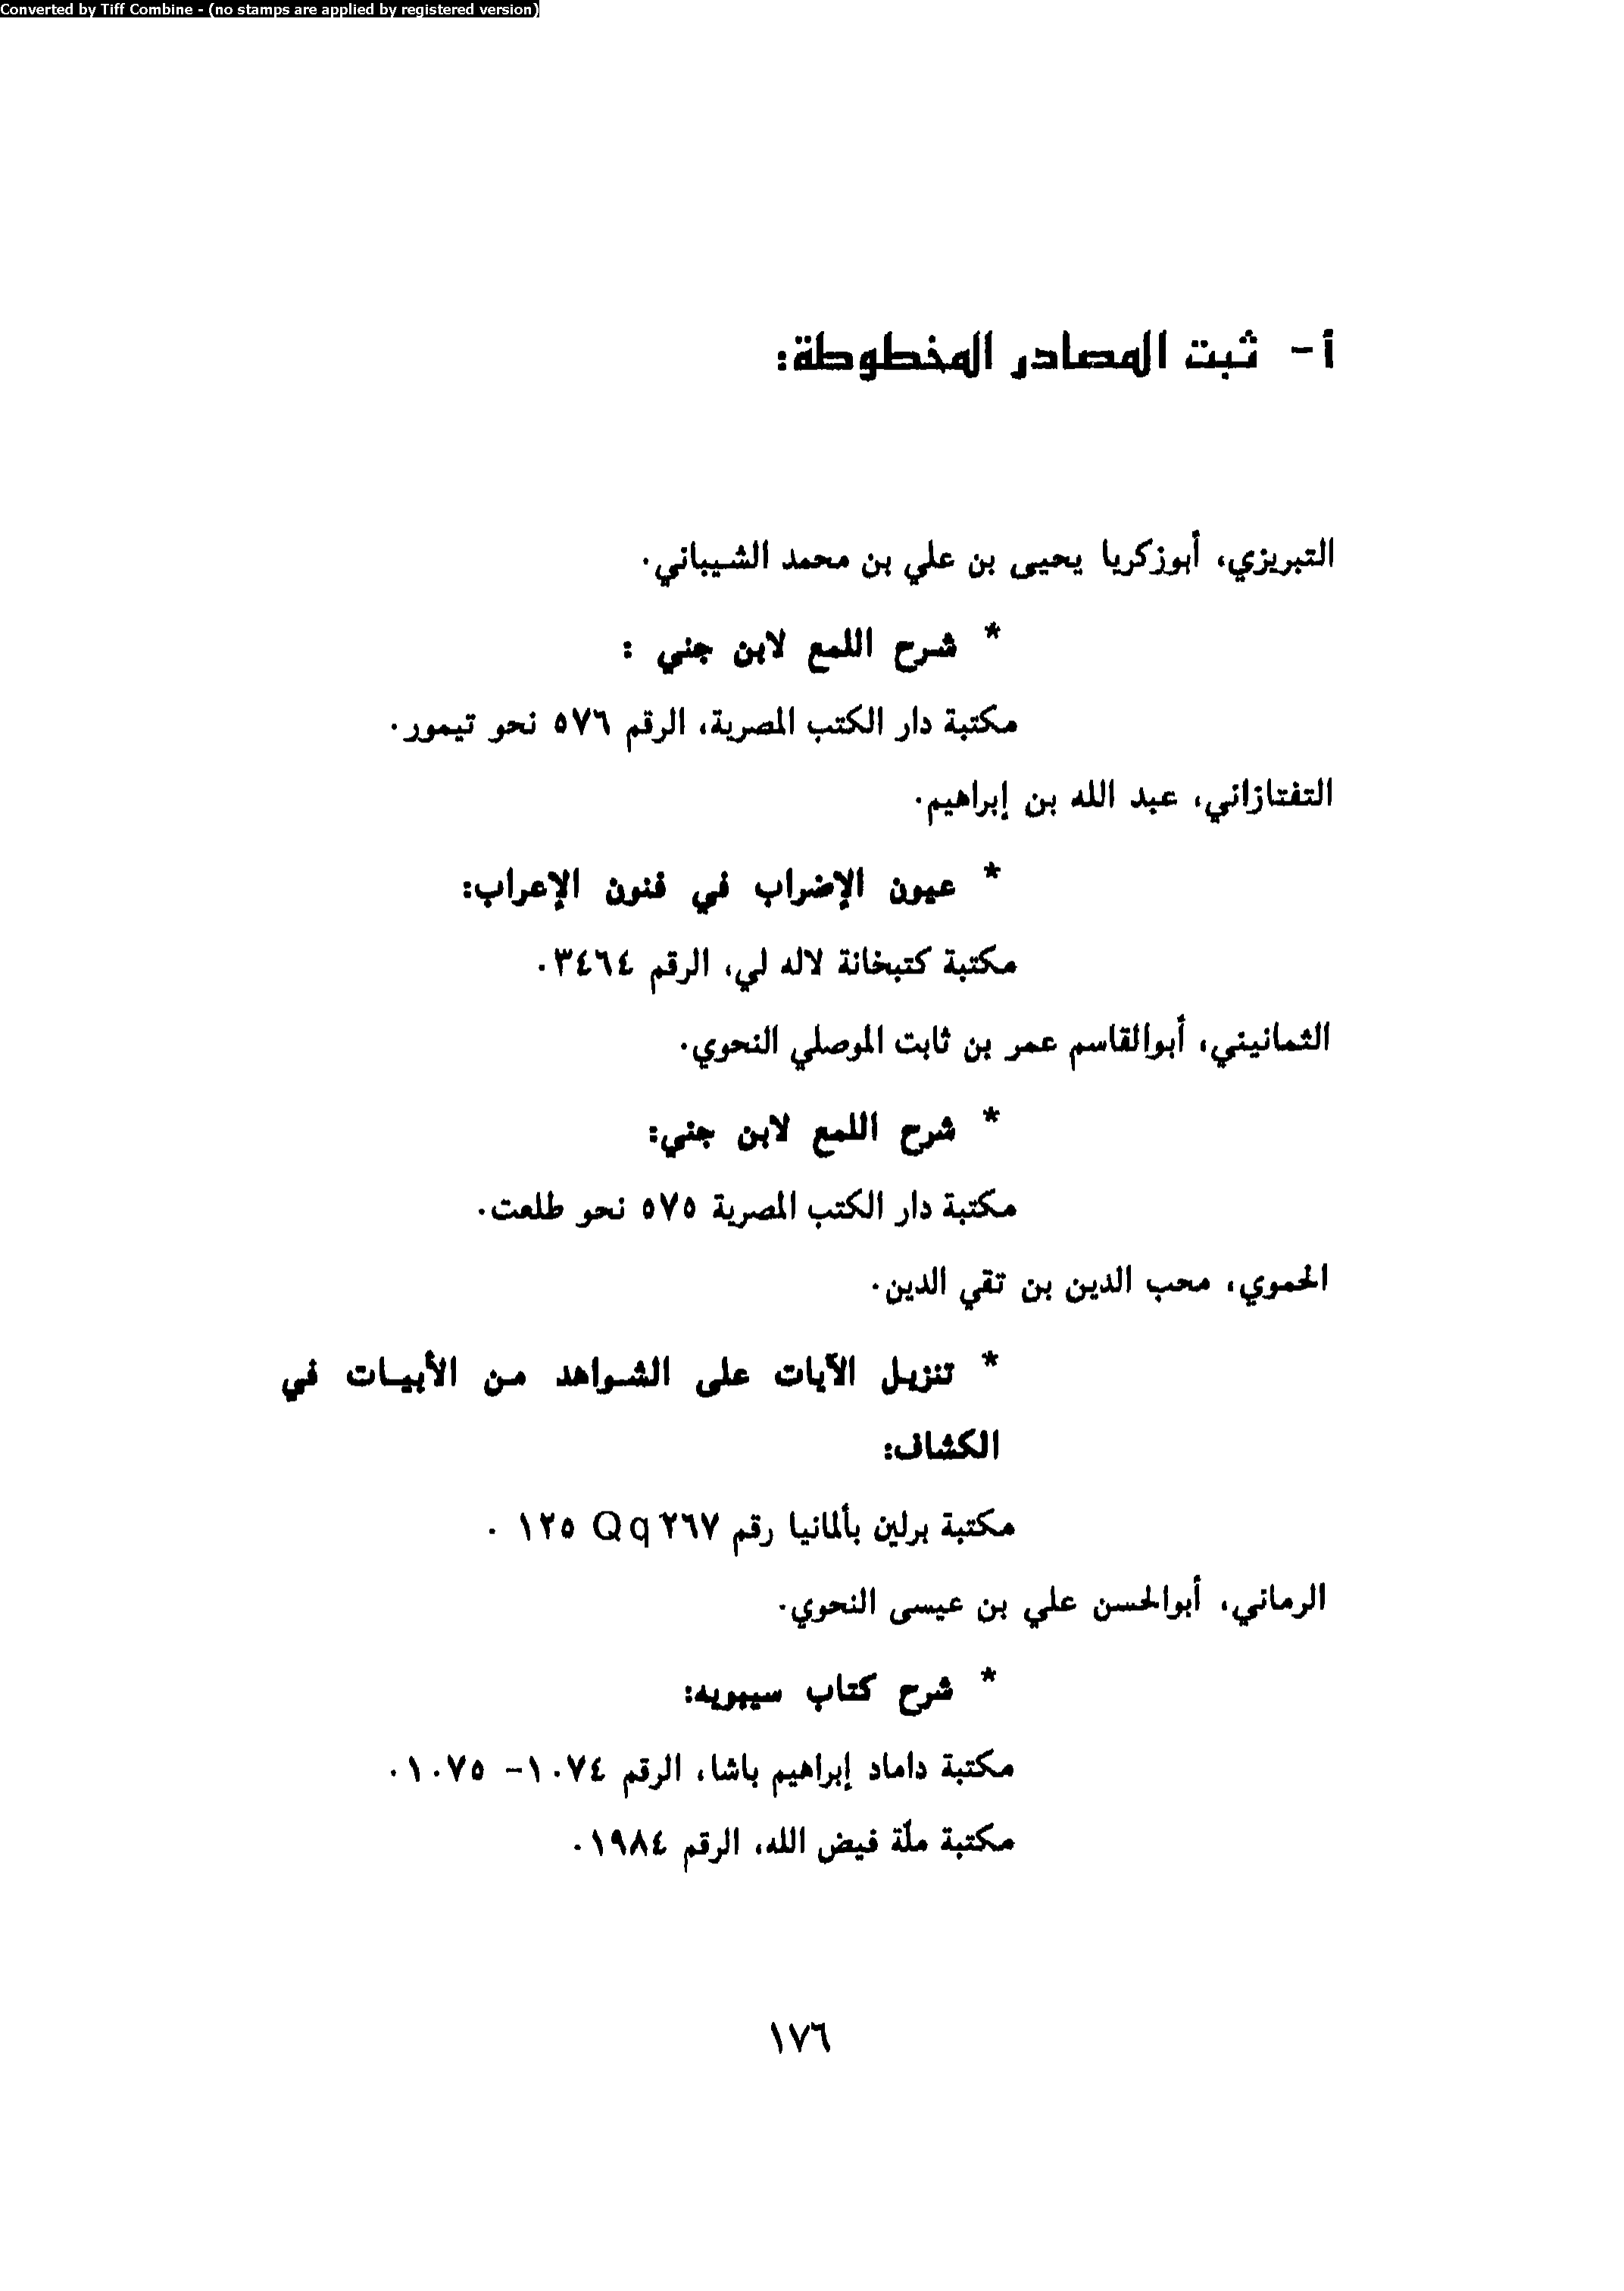 Converted by Tiff Combine - (no stamps are applied by registered version)
أ- ثبت المصادر المخطوطة:
التبريزي، أبوزكريا يحيى بن علي بن محمد الشيباني.
* شرح اللمع لابن جني :
مكتبة دار الكتب المصرية، الرقم ٥٧٦ نحو تيمور.
التفتازاني، عبد الله بن إبراهيم.
* عيون الإضراب في فنون الإعراب:
مكتبة كتبخانة لاله لي، الرقم ٣٤٦٤.
الثمانيني، أبوالقاسم عمر بن ثابت الموصلي النحوي.
* شرح اللمع لابن جني:
مكتبة دار الكتب المصرية ٥٧٥ نحو طلعت.
الحموي، محب الدين بن تقي الدين.
* تنزيل الآيات على الشواهد من الأبيات في
الكشاف:
مكتبة برلين بألمانيا رقم ٢٦٧ Qq ١٢٥ .
الرماني، أبوالحسن علي بن عيسى النحوي.
* شرح كتاب سيبويه:
مكتبة داماد إبراهيم باشا، الرقم ١٠٧٤- ١٠٧٥.
مكتبة ملّة فيض الله، الرقم ١٩٨٤.
١٧٦